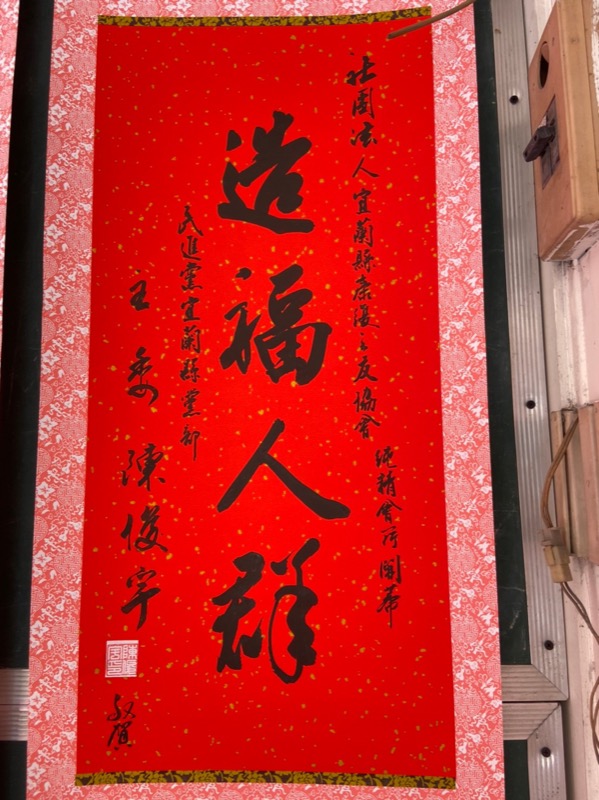 社團法人宜蘭縣康復之友協會 純精會所開幕
造福人群
民進黨宜蘭縣黨部
主委 陳俊宇
敬賀